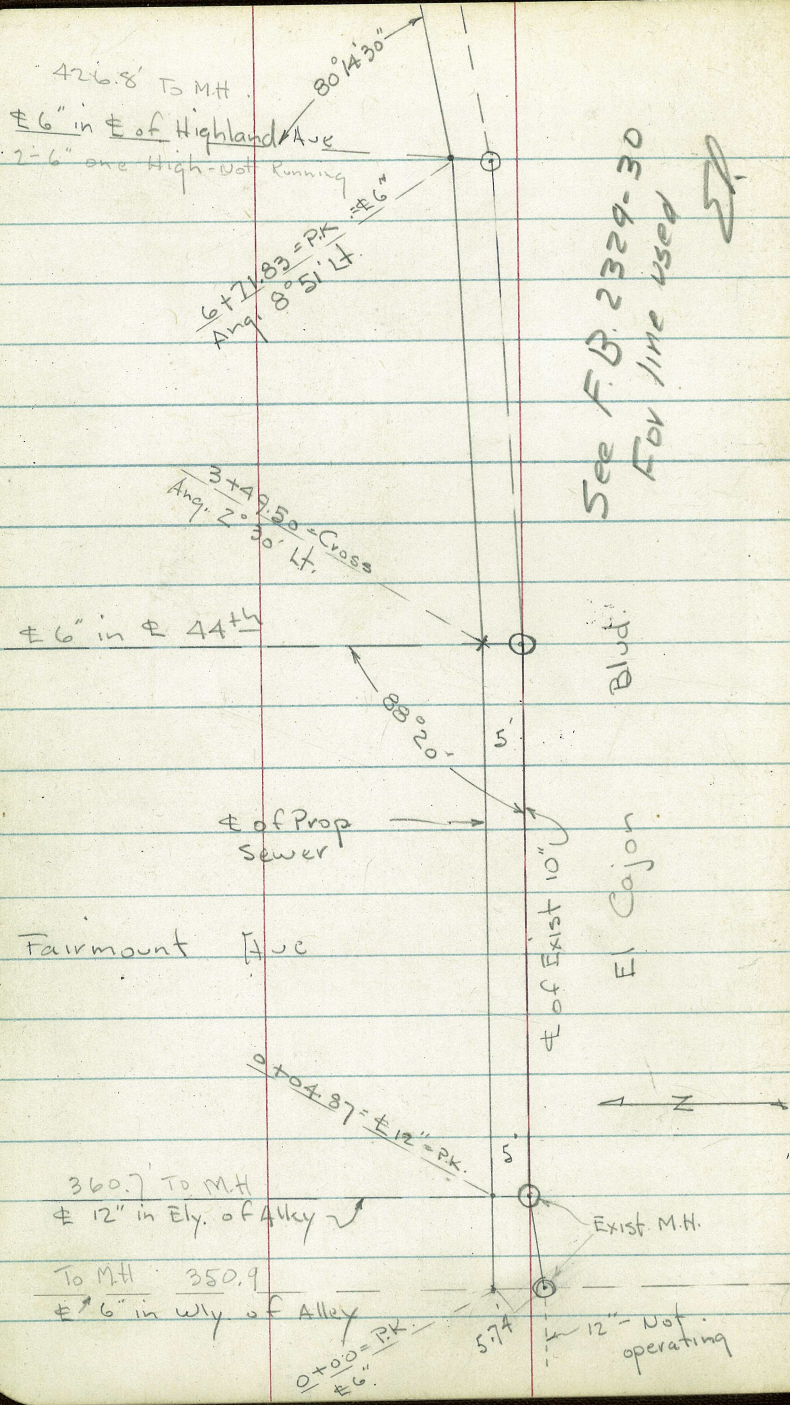 80°14'30"
426.8' To M.H.
℄ 6" in ℄ of Highland Ave
2-6" one High-Not Running
6+71.83 = P.K = ℄ 6"
Ang. 8° 51' Lt.
See F.B. 2329-30
For line used
3+49.50 = Cross
Ang. 2° 30' Lt.
℄ 6" in ℄ 44th
88° 20'
5'
℄ of Prop
Sewer
℄ of Exist 10"
El Cajon Blvd.
Fairmount Ave
N
0+04.87 = ℄ 12" = P.K.
5'
360.7' To M.H
℄ 12" in Ely. of Alley
Exist. M.H.
To M.H 350.9
℄ 6" in Wly. of Alley
0+00 = P.K.
℄ 6".
5.74
12" - Not
operating